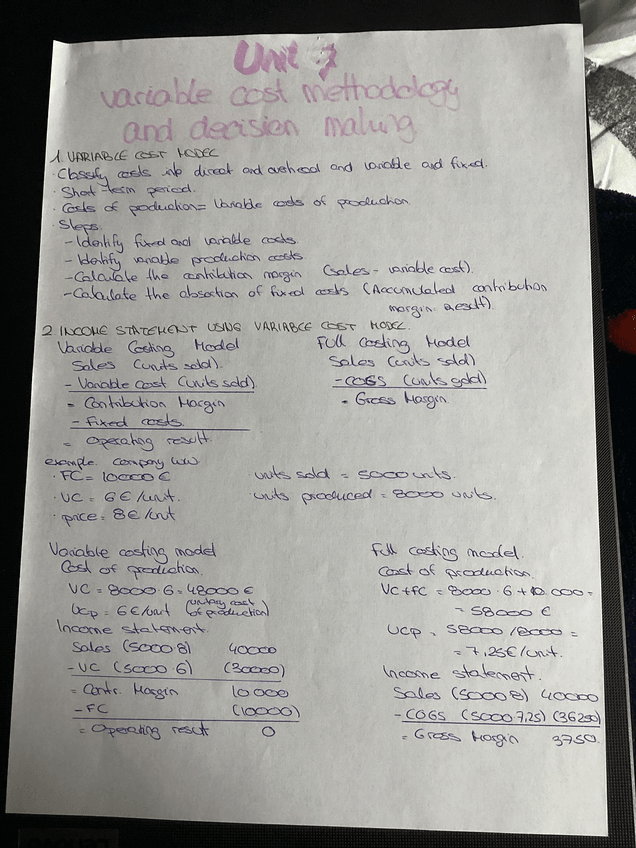 Unit 7
variable cost methodology
and decision making
1. VARIABLE COST MODEL
· Classify costs into direct and overhead and variable and fixed.
· Short-term period.
· Costs of production = Variable costs of production
· Steps:
- Identify fixed and variable costs.
- Identify variable production costs
- Calculate the contribution margin (sales - variable cost).
- Calculate the absortion of fixed costs (Accumulated contribution
margin result).
2 INCOME STATEMENT USING VARIABLE COST MODEL.
Variable Costing Model
Sales (units sold).
- Variable cost (units sold)
= Contribution Margin
- Fixed costs.
= Operating result.
Full Costing Model
Sales (units sold)
- COGS (units sold)
= Gross Margin
example. Company WW
· FC = 10000 €
· VC = 6 € / unit.
· price = 8 € / unit
· units sold = 5000 units.
· units produced = 8000 units.
Variable costing model
Cost of production.
VC = 8000 · 6 = 48000 €
Ucp = 6 € / unit (unitary cost
of production)
Income statement.
Sales (5000·8) 40000
- VC (5000·6) (30000)
= Contr. Margin 10000
- FC (10000)
= Operating result 0
Full costing model.
Cost of production.
VC + FC = 8000 · 6 + 10.000 =
= 58000 €
Ucp = 58000 / 8000 =
= 7,25 € / unit.
Income statement.
Sales (5000·8) 40000
- COGS (5000·7,25) (36250)
= Gross Margin 3750.